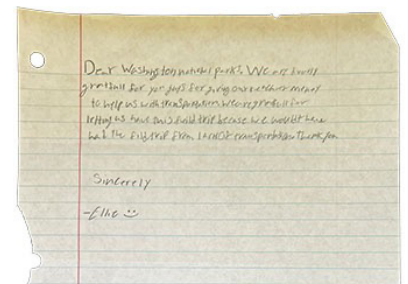 Dear Washington national parks, We are
gratfull for you guys for giving our teacher money
to help us with transportation we are gratfull for
letting us have this field trip becase we wouldn't have
had the field trip from lack of transportation Thank you
Sincerely
-Ellie